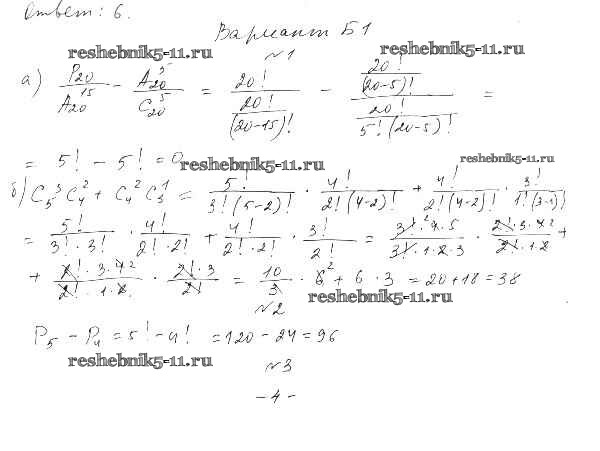 Ответ: 6.
Вариант Б1
reshebnik5-11.ru reshebnik5-11.ru
№1
а) P20/A20^15 − A20^5/C20^5 = 20!/(20!/(20−15)!) − (20!/(20−5)!)/(20!/5!(20−5)!) =
= 5! − 5! = 0 reshebnik5-11.ru reshebnik5-11.ru
б) C5^3 C4^2 + C4^2 C3^1 = 5!/3!(5−2)! · 4!/2!(4−2)! + 4!/2!(4−2)! · 3!/1!(3−1)!
= 5!/3!·3! · 4!/2!·2! + 4!/2!·2! · 3!/2! = 3!·4·5/3!·1·2·3 · 2!·3·4/2!·1·2 +
+ 2!·3·4/2!·1·2 · 2!·3/2! = 10/3 · 6 + 6 · 3 = 20+18=38
№2 reshebnik5-11.ru
P5 − P4 = 5!−4! =120−24=96
reshebnik5-11.ru №3 reshebnik5-11.ru
−4−